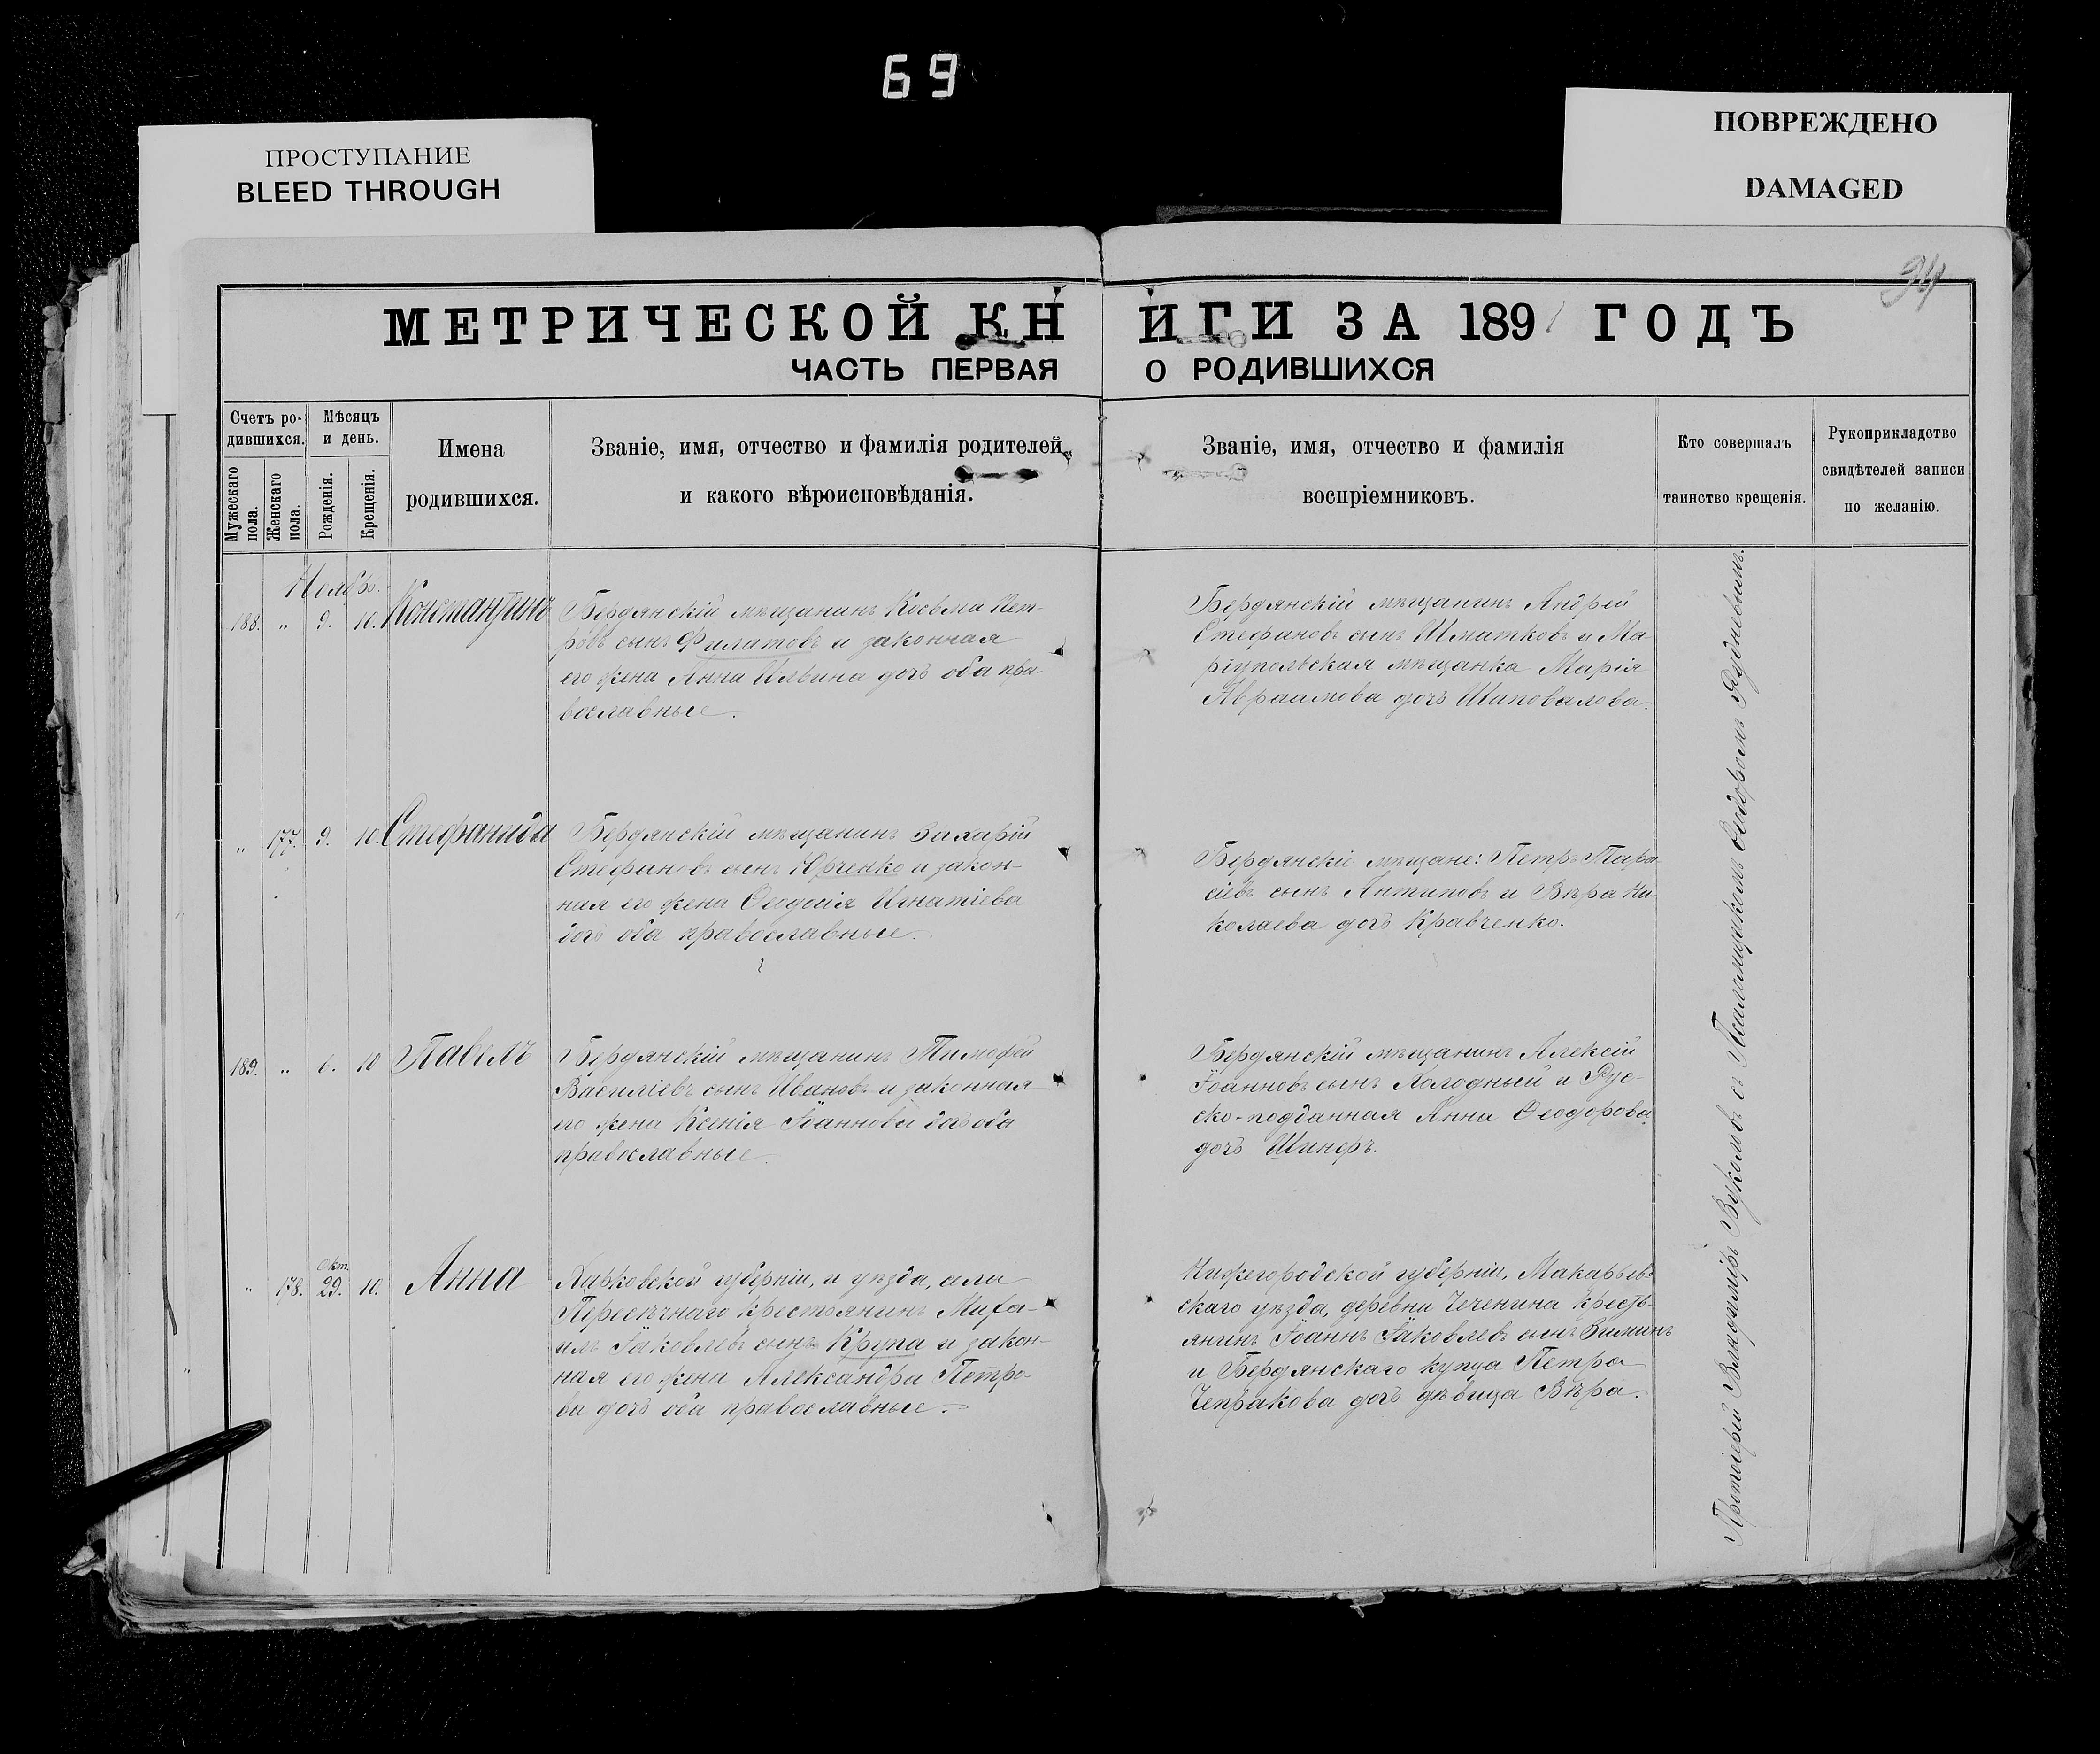 69
ПРОСТУПАНИЕ
BLEED THROUGH
ПОВРЕЖДЕНО
DAMAGED
94
МЕТРИЧЕСКОЙ КНИГИ ЗА 1891 ГОДЪ
ЧАСТЬ ПЕРВАЯ О РОДИВШИХСЯ
Счетъ ро-
дившихся.
Мужескаго
пола.
Женскаго
пола.
Мѣсяцъ
и день.
Рожденія.
Крещенія.
Имена
родившихся.
Званіе, имя, отчество и фамилія родителей,
и какого вѣроисповѣданія.
Званіе, имя, отчество и фамилія
воспріемниковъ.
Кто совершалъ
таинство крещенія.
Рукоприкладство
свидѣтелей записи
по желанію.
Ноябрь.
188. " 9. 10. Константинъ
Бердянскій мѣщанинъ Косьма Пет-
ровъ сынъ Филатовъ и законная
его жена Анна Ильина дочь оба пра-
вославные.
Бердянскій мѣщанинъ Андрей
Стефановъ сынъ Шматковъ и Ма
ріупольская мѣщанка Марія
Авраамова дочь Шаповалова.
" 177. 9. 10. Стефанида
Бердянскій мѣщанинъ Захарій
Стефановъ сынъ Юрченко и закон-
ная его жена Ѳеодосія Игнатіева
дочь оба православные.
Бердянскіе мѣщане: Петръ Тара
сіевъ сынъ Антиповъ и Вѣра Ни-
колаева дочь Кравченко.
189. " 6. 10 Павелъ
Бердянскій мѣщанинъ Тимофей
Василіевъ сынъ Ивановъ и законная
его жена Ксенія Іоаннова дочь оба
православные.
Бердянскій мѣщанинъ Алексій
Іоанновъ сынъ Холодный и Рус-
ско-подданная Анна Ѳеодорова
дочь Шинеръ.
Окт.
" 178. 29. 10. Анна
Харковской губерніи, и уѣзда, села
Пересѣчнаго крестьянинъ Миха-
илъ Іаковлевъ сынъ Крупа и закон-
ная его жена Александра Петро-
ва дочь оба православные.
Нижегородской губерніи, Макарьев-
скаго уѣзда, деревни Чеченина крестъ-
янинъ Іоаннъ Іаковлевъ сынъ Зиминъ
и Бердянскаго купца Петра
Чепракова дочь дѣвица Вѣра.
Протоіерей Владиміръ Вуколовъ съ Псаломщикомъ Ѳеодоромъ Рудневымъ.